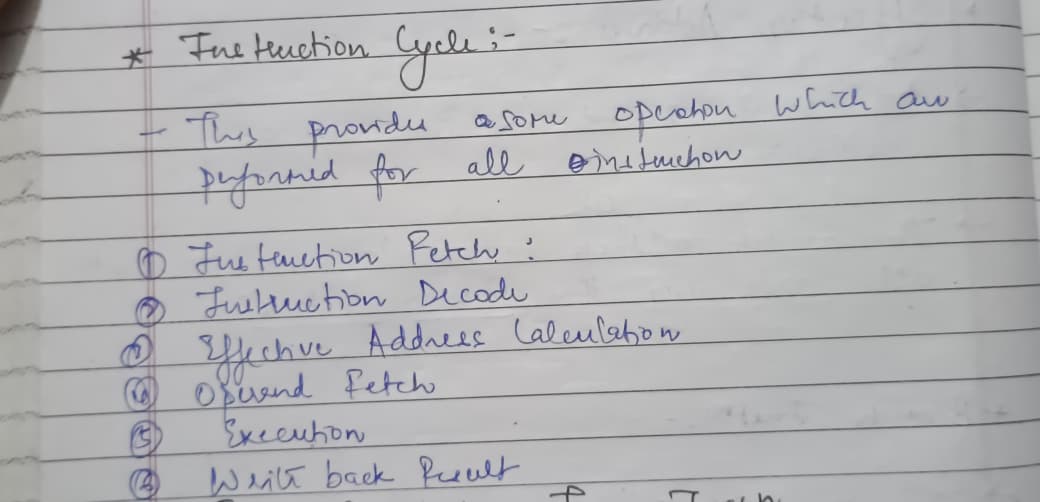 * Instruction Cycle :-
- This provides some operation which are
performed for all instruction
① Instruction Fetch :
② Instruction Decode
③ Effective Address Calculation
④ Operand Fetch
⑤ Execution
Write back Result